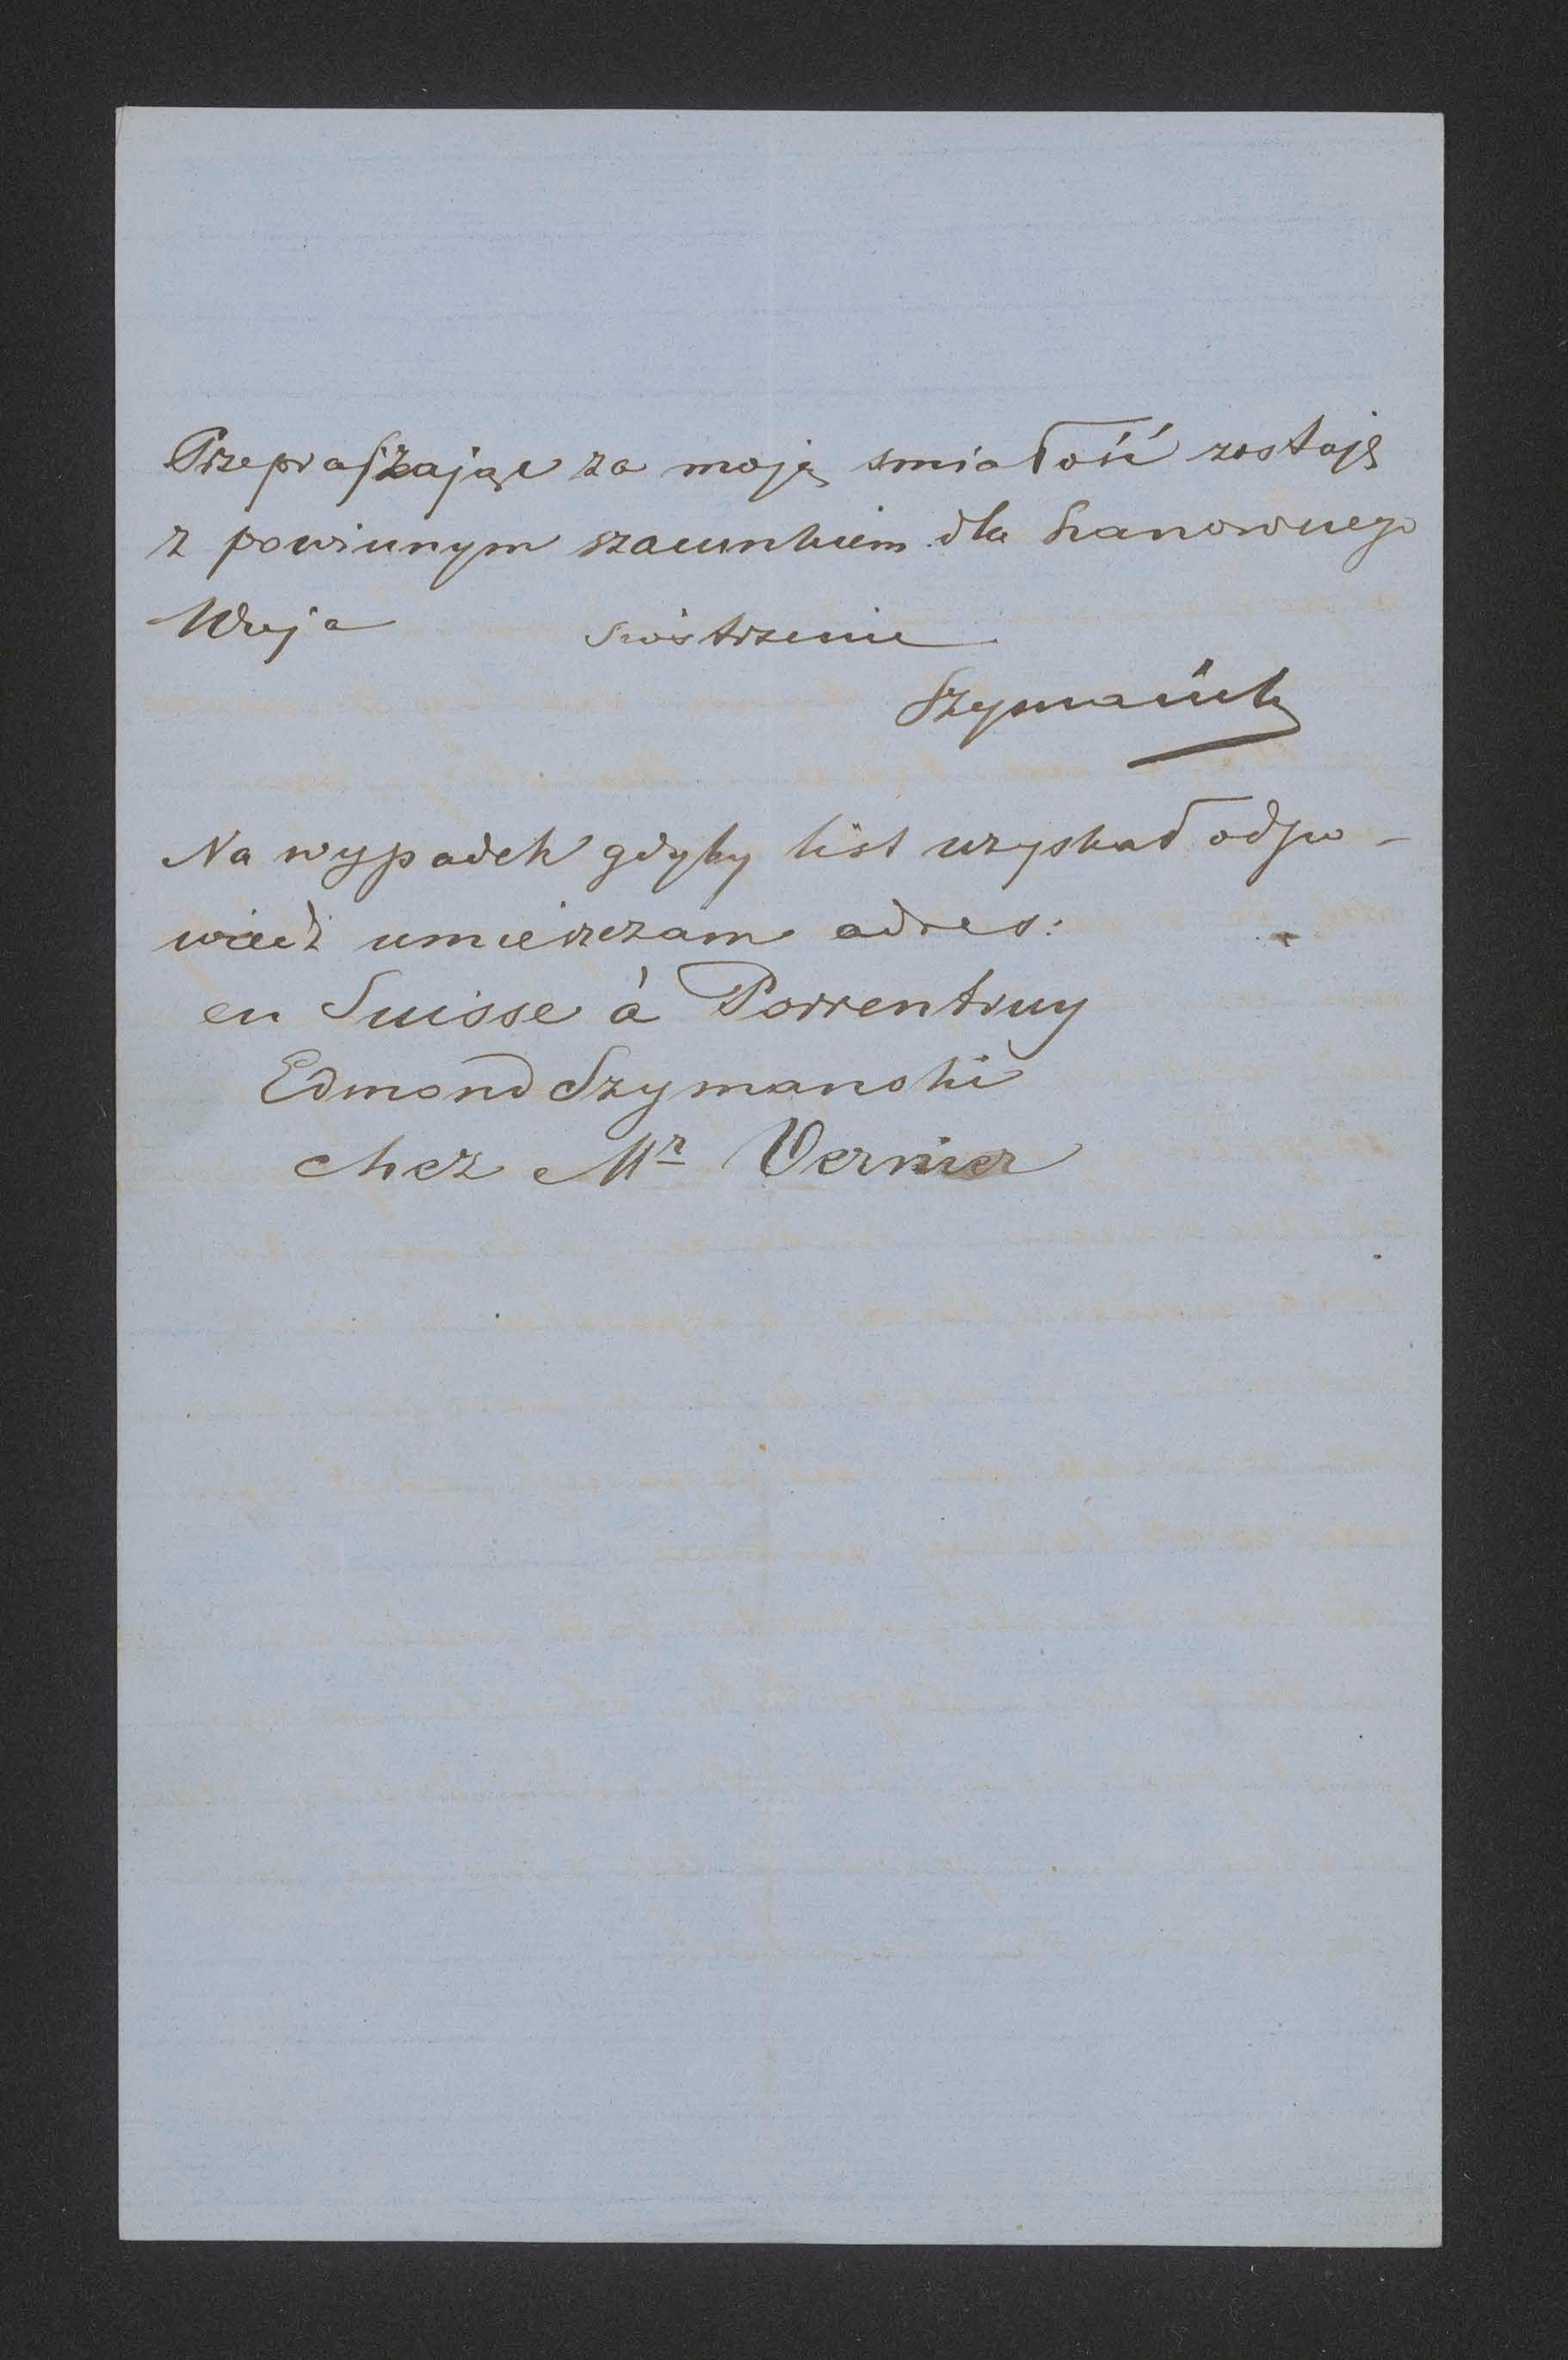 Przepraszając za moją smiałość zostaję
z powinnym szacunkiem dla Szanownego
Wuja siostrzeniec
Szymański
Na wypadek gdyby list uzyskał odpo-
wiedź umieszczam adres:
en Suisse à Porrentruy
Edmond Szymanski
chez Mr Vernier